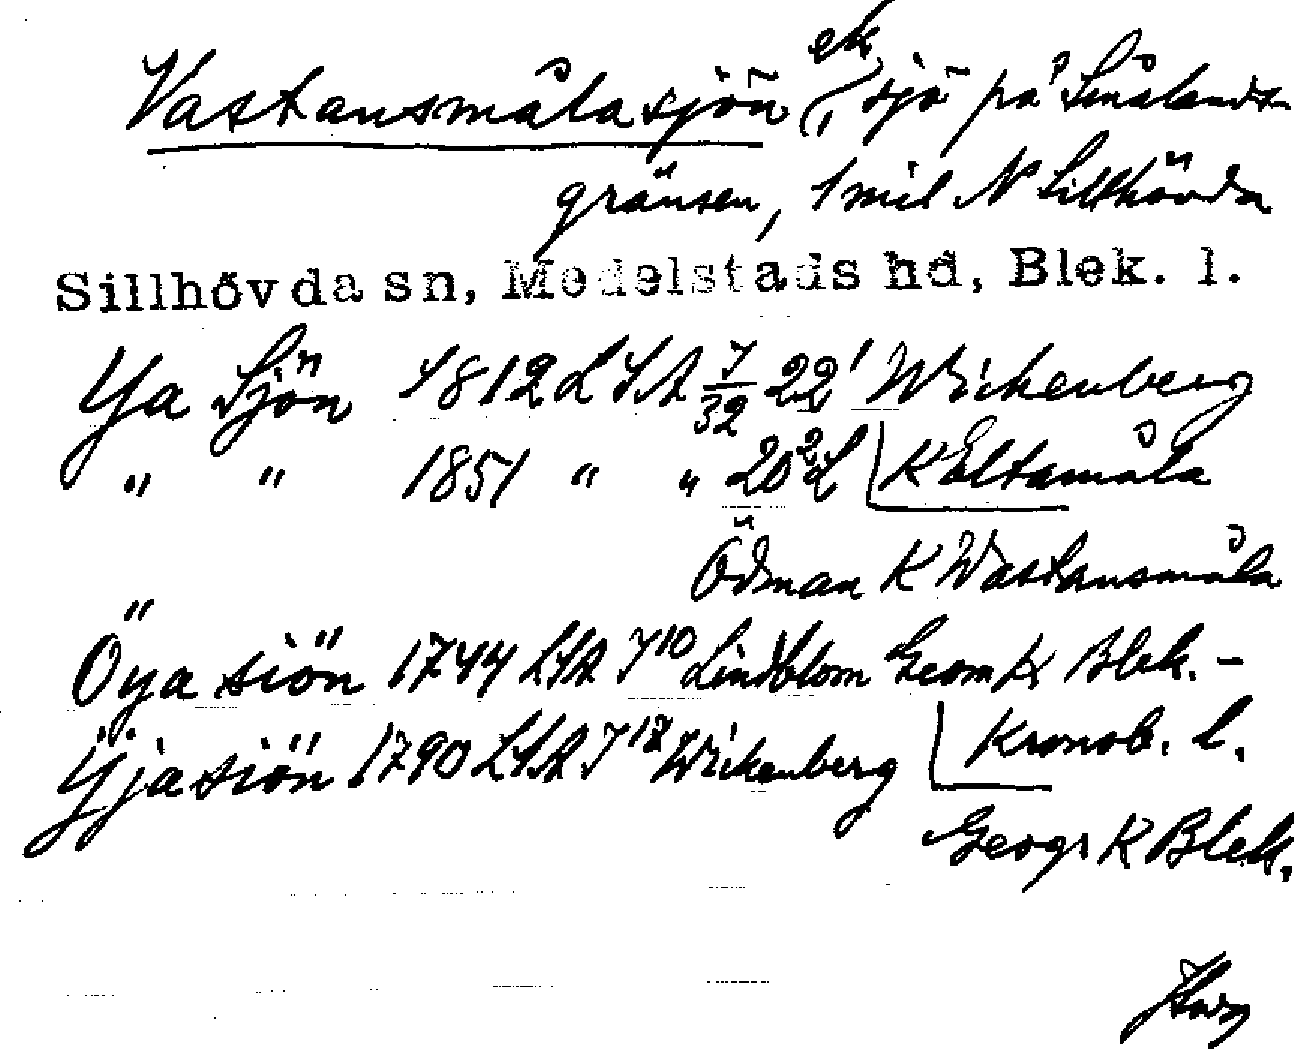 Vastansmålasjön ek, sjö på Smålands-
gränsen, 1 mil N Sillhövda
Sillhövda sn, Medelstads hd, Blek. l.
Ya Sjön 1812 LSA 7/32 22¹ Wickenberg
" " 1851 " " 20² L K Eltamåla
Ödman K Wastansmåla
Öya siön 1744 LSA J¹⁰ Lindblom Geom K Blek.-
Kronob. l.
Yjasiön 1790 LSA J¹² Wickenberg
Geogr K Blek.